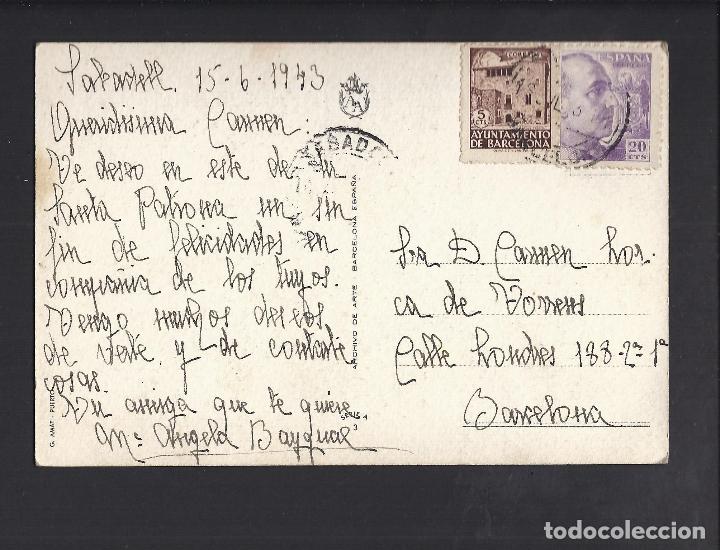 Sabadell 15-6-1943
Queridisima Carmen:
Te deseo en este de tu
Santa Patrona un sin
fin de felicidades en
compañia de los tuyos.
Tengo muchos deseos
de verte y de contarte
cosas.
Tu amiga que te quiere
Mª Angela Bayqual
G. AMAT - PUERTO
ARCHIVO DE ARTE BARCELONA ESPAÑA
SERIE 4
3
SABADELL
CORREOS
5
CTS
AYUNTAMIENTO
DE BARCELONA
ESPAÑA
20
CTS
Sra D. Carmen Lor.
ca de Torrens
Calle Londres 188-2º 1ª
Barcelona
todocoleccion